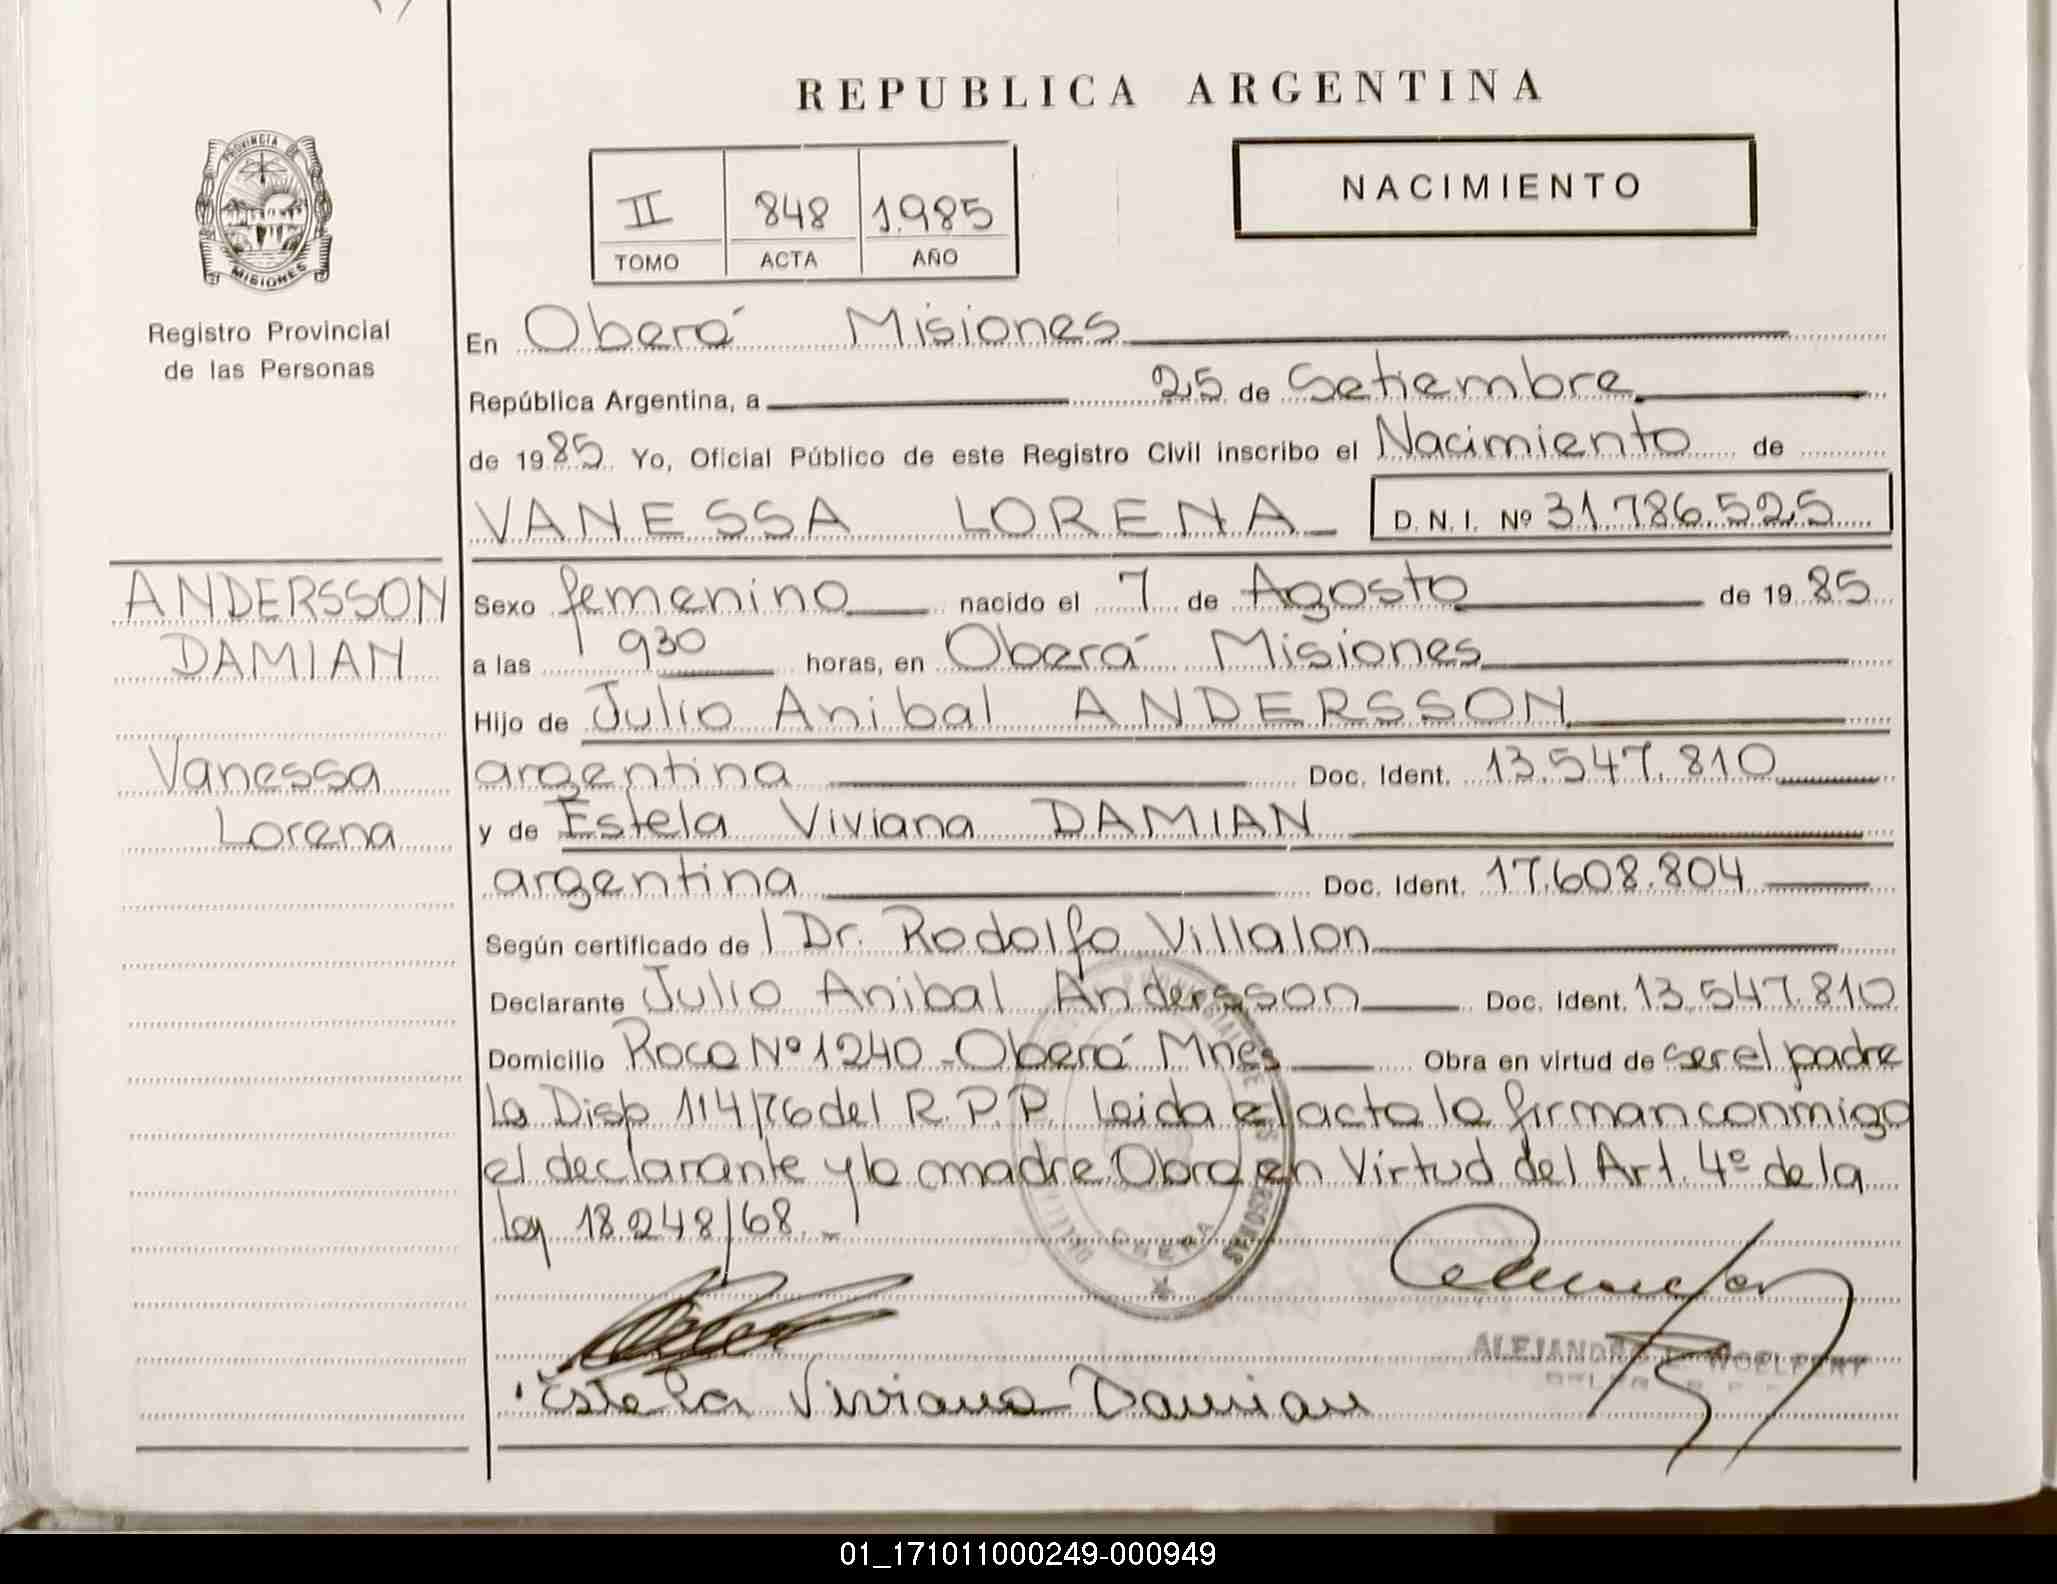 REPUBLICA ARGENTINA
PROVINCIA DE
MISIONES
Registro Provincial
de las Personas
II 848 1.985
TOMO ACTA AÑO
NACIMIENTO
En Oberá Misiones
República Argentina, a 25 de Setiembre
de 1985. Yo, Oficial Público de este Registro Civil inscribo el Nacimiento de
VANESSA LORENA D. N. I. Nº 31.786.525
ANDERSSON
DAMIAN
Vanessa
Lorena
Sexo femenino nacido el 7 de Agosto de 1985
a las 930 horas, en Oberá Misiones
Hijo de Julio Anibal ANDERSSON
argentina Doc. Ident. 13.547.810
y de Estela Viviana DAMIAN
argentina Doc. Ident. 17.608.804
Según certificado de Dr. Rodolfo Villalon
Declarante Julio Anibal Andersson Doc. Ident. 13.547.810
Domicilio Roca Nº 1240 - Oberá Mnes Obra en virtud de ser el padre
La Disp. 114/76 del R.P.P. Leida el acta la firman conmigo
el declarante y la madre. Obra en Virtud del Art. 4º de la
ley 18.248/68.-
OBERA
Estela Viviana Damian
01_171011000249-000949